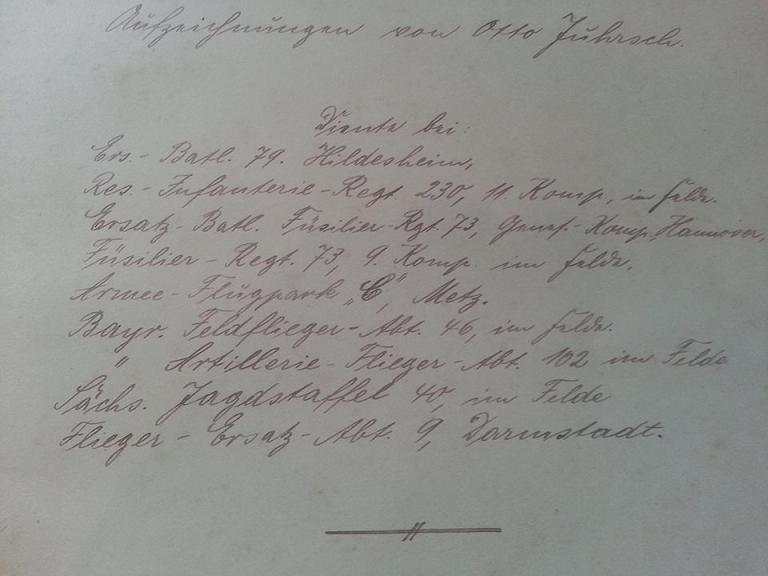 Aufzeichnungen von Otto Fuhrsch.
Diente bei:
Ers.- Batl. 79. Hildesheim,
Res.- Infanterie-Regt. 230, 11. Komp., im Felde.
Ersatz-Batl. Füsilier-Rgt. 73, Genes.-Komp., Hannover,
Füsilier-Regt. 73, 9. Komp. im Felde.
Armee-Flugpark „C", Metz.
Bayr. Feldflieger-Abt. 46, im Felde.
" Artillerie-Flieger-Abt. 102 im Felde
Sächs. Jagdstaffel 40, im Felde
Flieger-Ersatz-Abt. 9, Darmstadt.